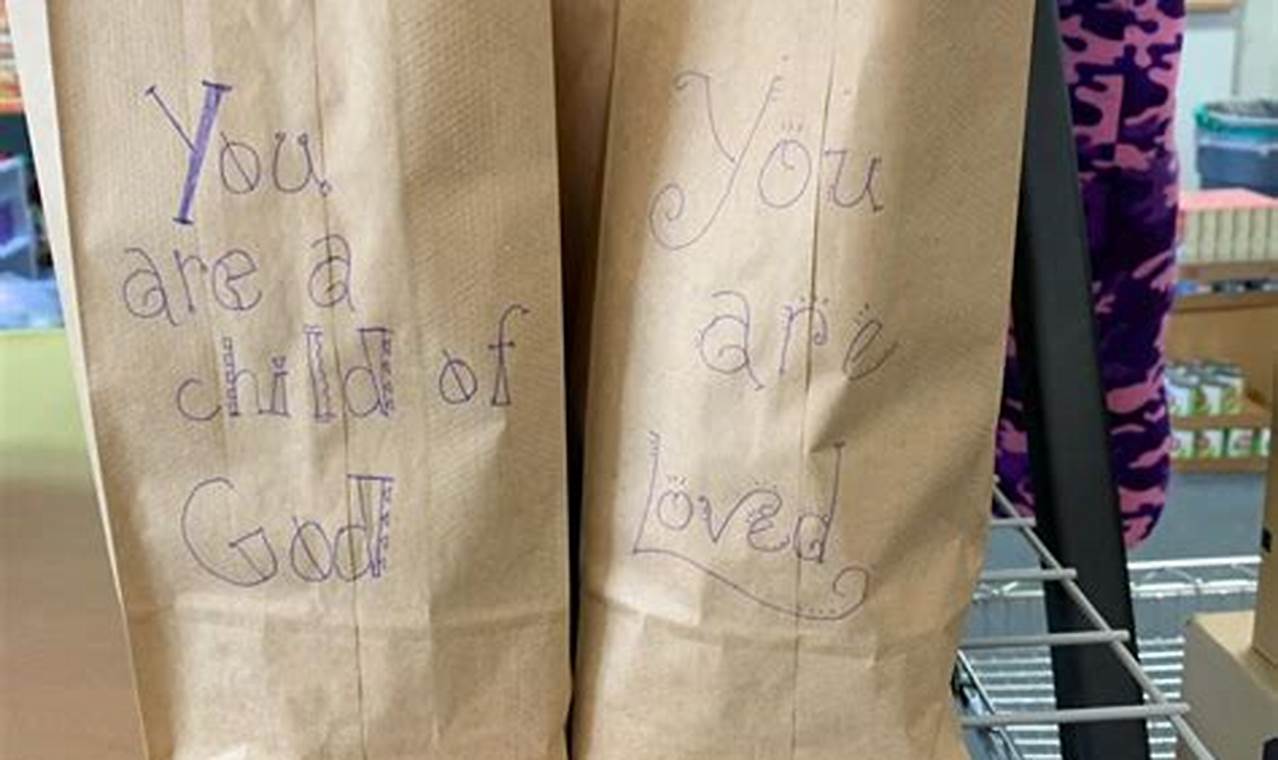 You
are a
child of
God
You
are
Loved